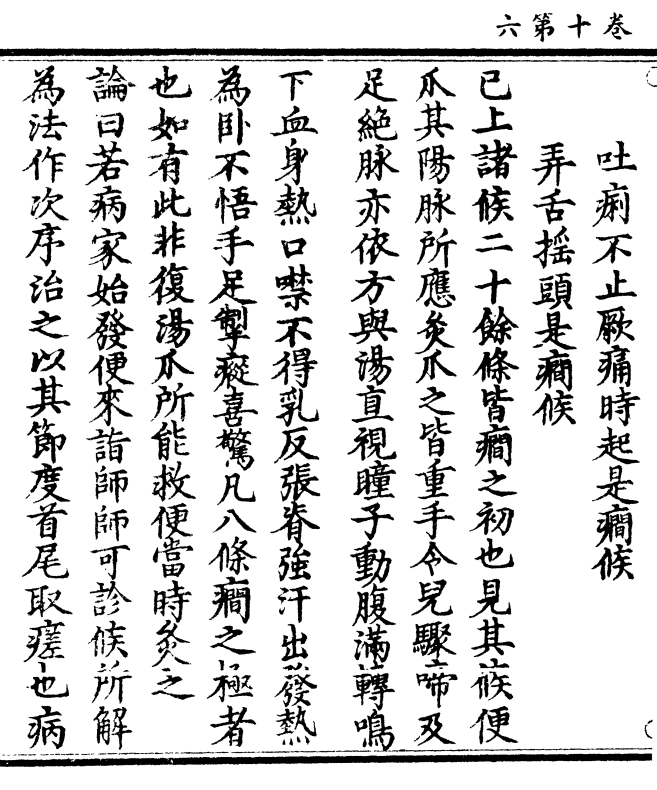 卷十第六
吐痢不止厥痛時起是癇候
弄舌搖頭是癇候
已上諸候二十餘條皆癇之初也見其候便
爪其陽脉所應灸爪之皆重手令兒驟啼及
足絶脉亦依方與湯直視瞳子動腹滿轉鳴
下血身熱口噤不得乳反張脊強汗出發熱
為卧不悟手足掣瘲喜驚凡八條癇之極者
也如有此非復湯爪所能救便當時灸之
論曰若病家始發便來詣師師可診候所解
為法作次序治之以其節度首尾取瘥也病